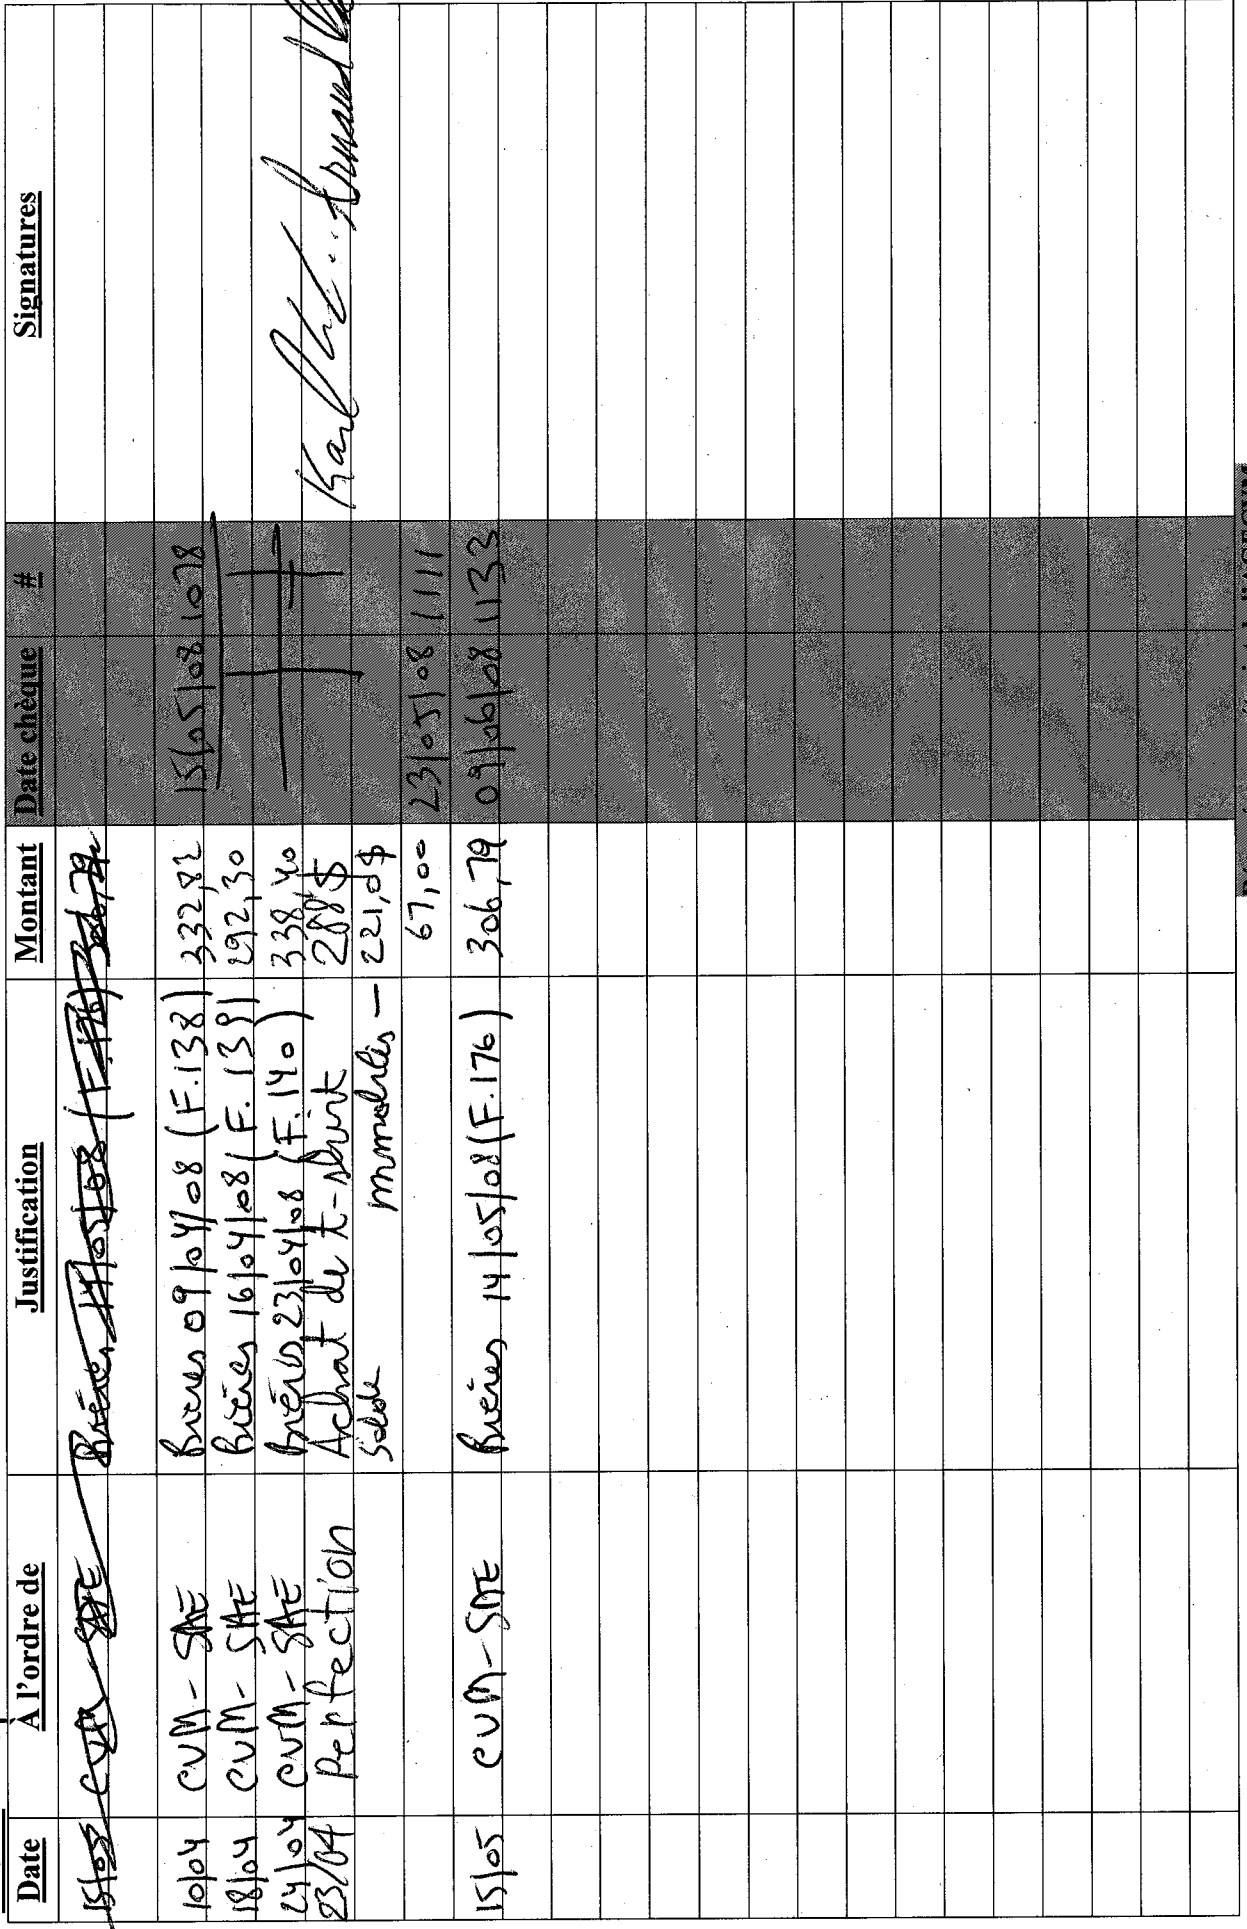 Date À l'ordre de Justification Montant Date chèque # Signatures
15/05 CVM-SAE Bières 14/05/08 (F.176) 306,79
10/04 CVM-SAE Bieres 09/04/08 (F.138) 332,82 15/05/08 1078
18/04 CVM-SAE Bières 16/04/08 (F.139) 292,30
24/04 CVM-SAE Bières 23/04/08 (F.140) 338,40
23/04 Perfection Achat de t-shirt 288 $ Karl
Solde 221,0$
67,00 23/05/08 1111
15/05 CVM-SAE Bières 14/05/08 (F.176) 306,79 09/06/08 1133